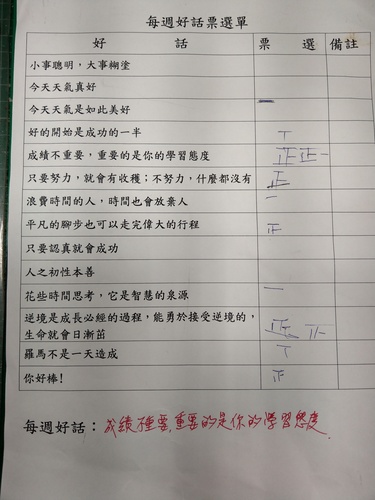 每週好話票選單
好話 票選 備註
小事聰明，大事糊塗
今天天氣真好
今天天氣是如此美好 一
好的開始是成功的一半 丅
成績不重要，重要的是你的學習態度 正正一
只要努力，就會有收穫；不努力，什麼都沒有 正
浪費時間的人，時間也會放棄人 一
平凡的腳步也可以走完偉大的行程 正
只要認真就會成功
人之初性本善
花些時間思考，它是智慧的泉源 一
逆境是成長必經的過程，能勇於接受逆境的，
生命就會日漸茁 正
羅馬不是一天造成 丅
你好棒! 正
每週好話：成績不重要，重要的是你的學習態度